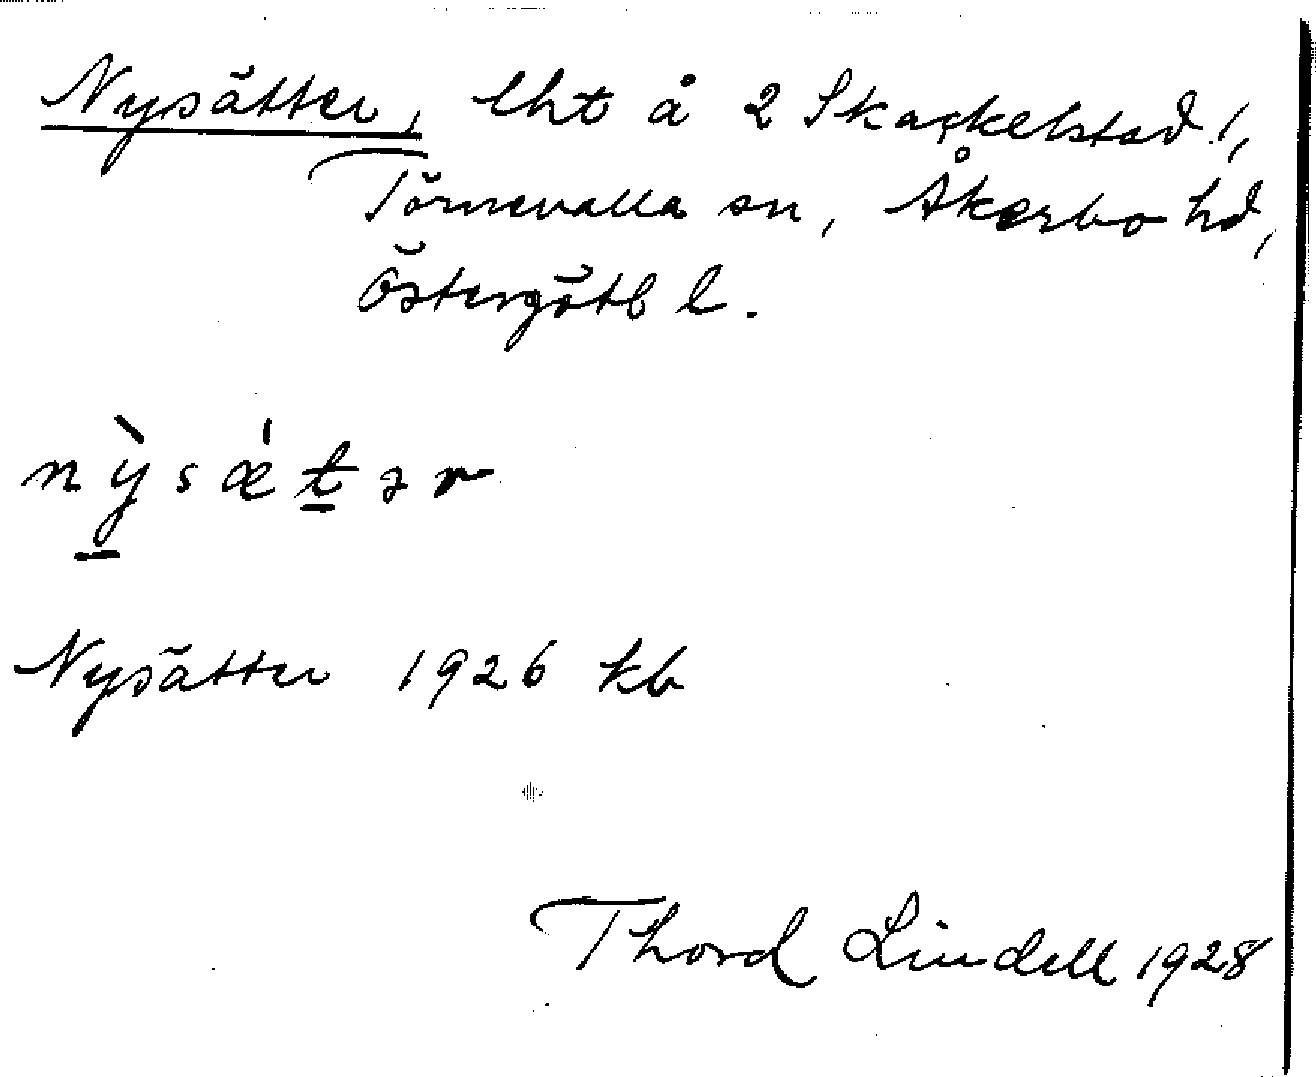 Nysätter, lht å 2 Skackelstad!,
Törnevalla sn, Åkerbo hd,
Östergötl l.
nỳsǽtər
Nysätter 1926 kb
Thord Lindell 1928